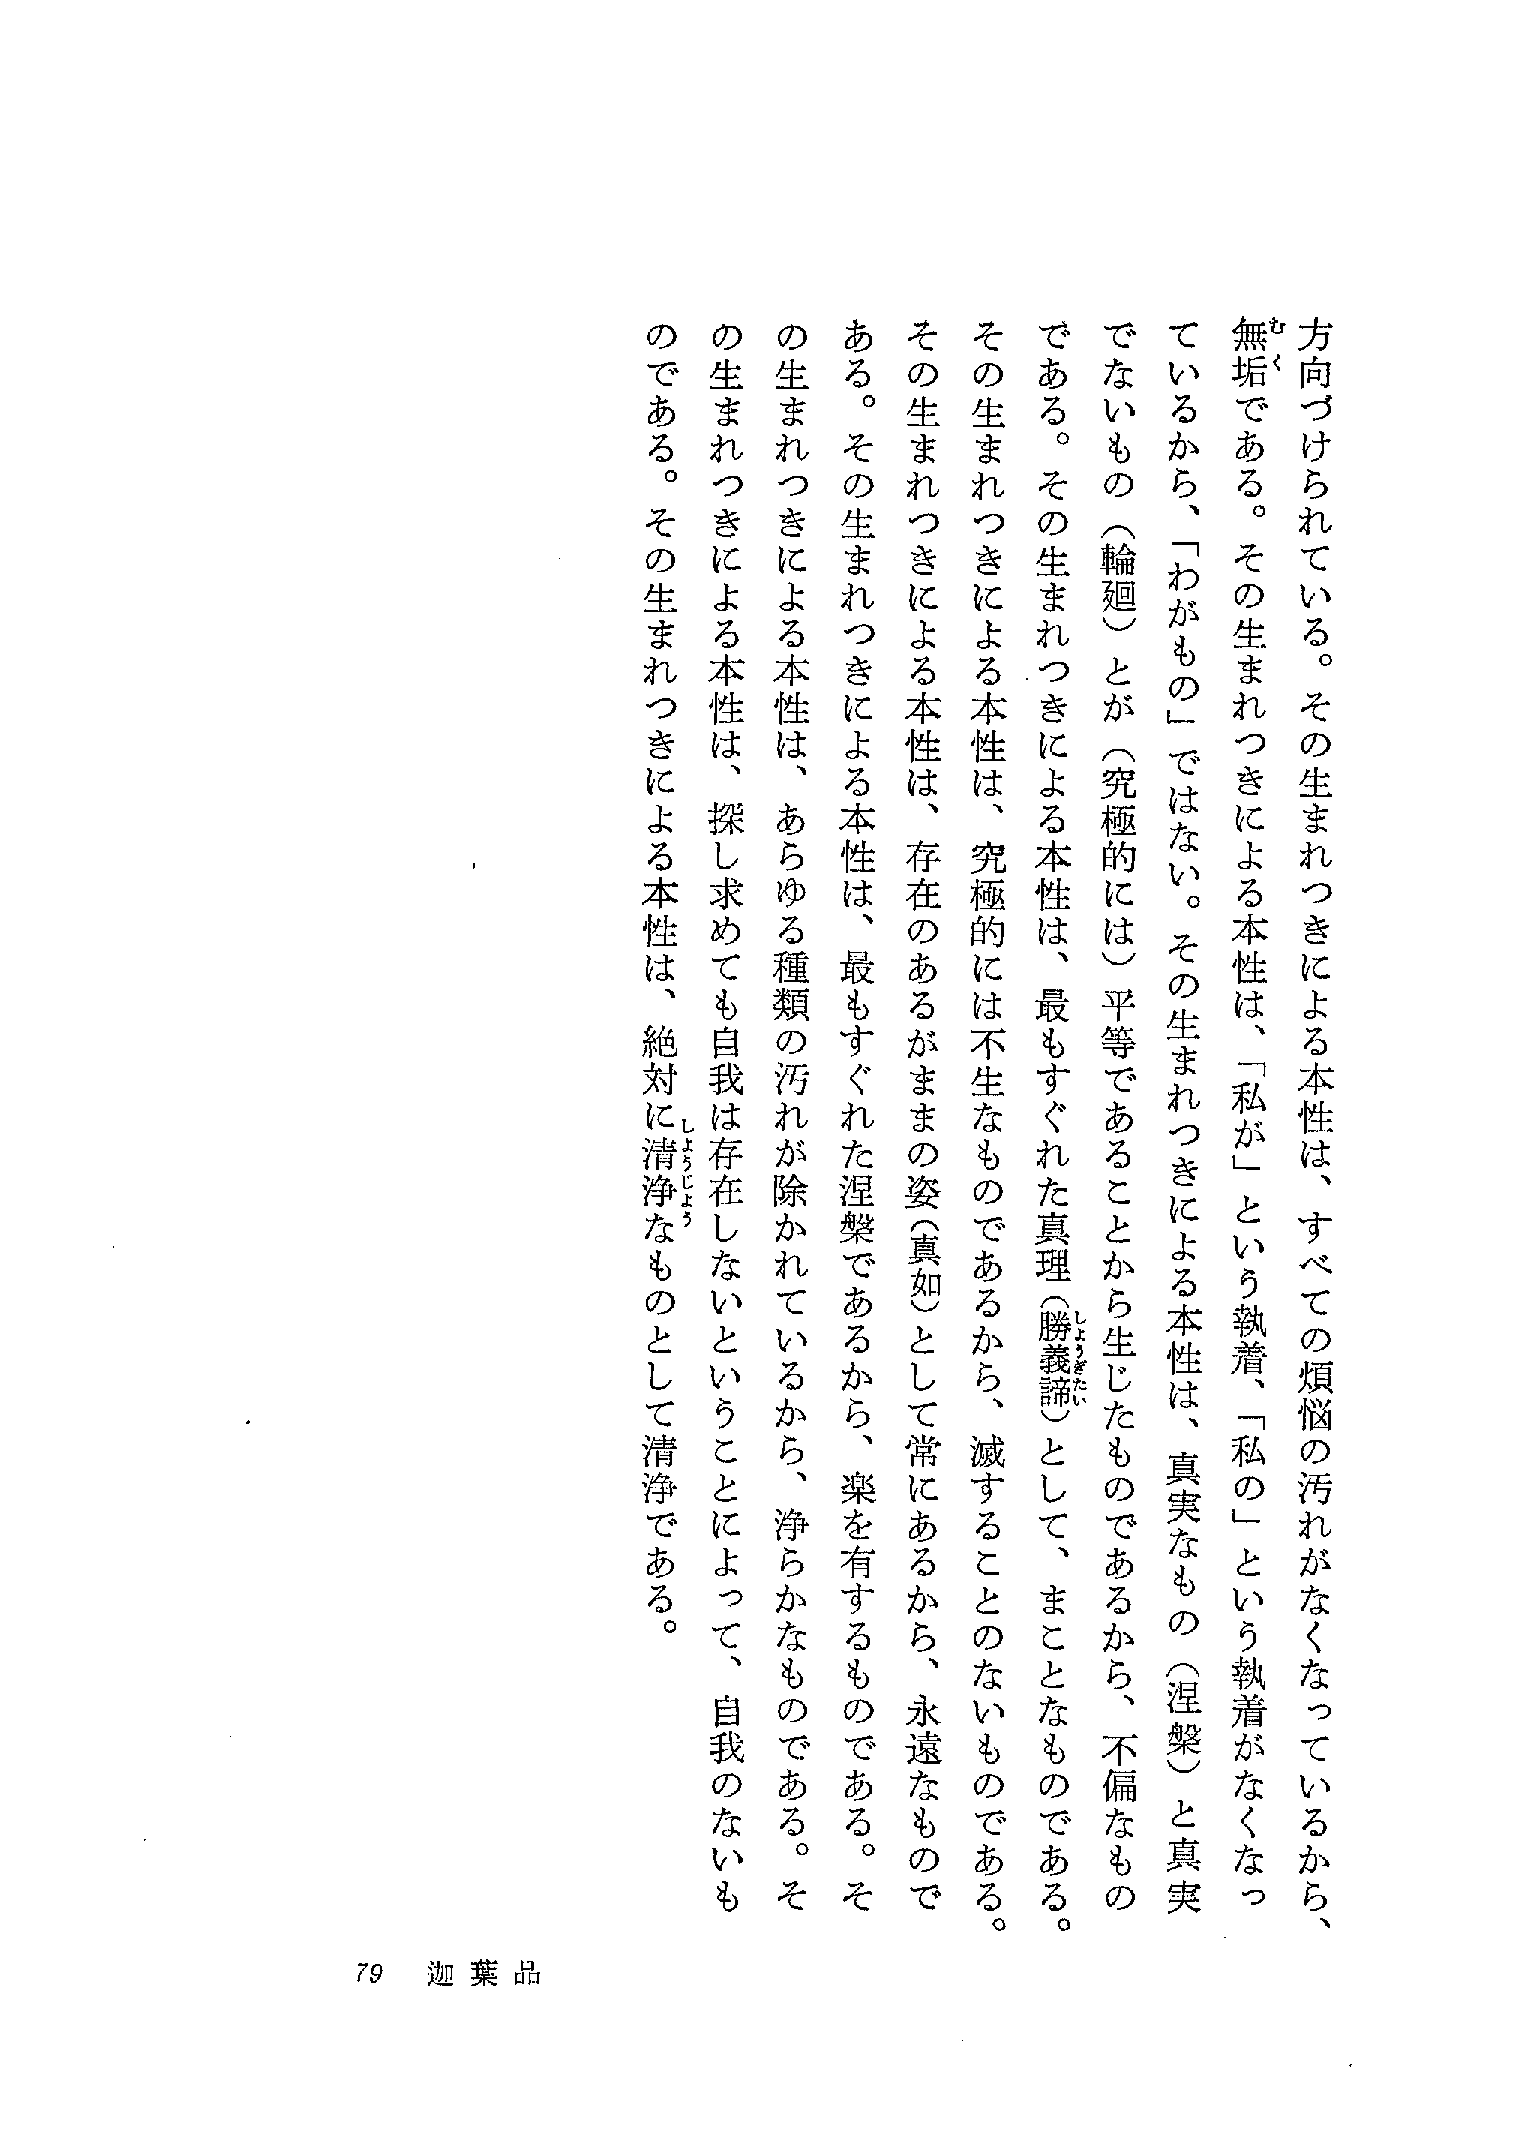 方向づけられている。その生まれつきによる本性は、すべての煩悩の汚れがなくなっているから、
無垢である。その生まれつきによる本性は、「私が」という執着、「私の」という執着がなくなっ
ているから、「わがもの」ではない。その生まれつきによる本性は、真実なもの（涅槃）と真実
でないもの（輪廻）とが（究極的には）平等であることから生じたものであるから、不偏なもの
である。その生まれつきによる本性は、最もすぐれた真理（勝義諦）として、まことなものである。
その生まれつきによる本性は、究極的には不生なものであるから、滅することのないものである。
その生まれつきによる本性は、存在のあるがままの姿（真如）として常にあるから、永遠なもので
ある。その生まれつきによる本性は、最もすぐれた涅槃であるから、楽を有するものである。そ
の生まれつきによる本性は、あらゆる種類の汚れが除かれているから、浄らかなものである。そ
の生まれつきによる本性は、探し求めても自我は存在しないということによって、自我のないも
のである。その生まれつきによる本性は、絶対に清浄なものとして清浄である。
79 迦葉品